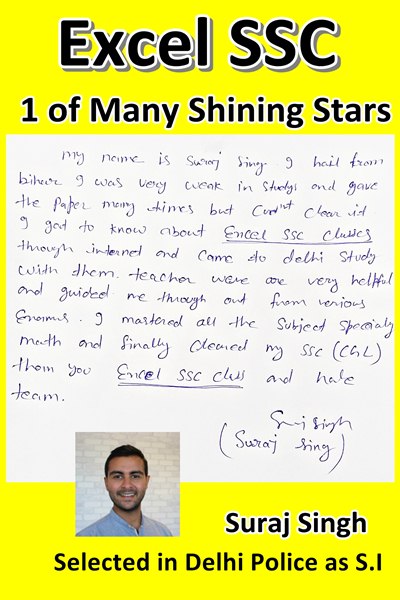 Excel SSC
1 of Many Shining Stars
my name is Suraj Sing. I hail from
bihar I was very weak in studys and gave
the Paper many times but Cud'nt Clear it
I got to know about Excel SSC Classes
through internet and Came to delhi Study
with them. teacher were are very helpful
and guided me through out from verious
Enomus. I mastered all the Subject Specialy
math and finally Cleared my SSC (CGL)
thank you Excel SSC Class and hale
team.
(Suraj Sing)
Suraj Singh
Selected in Delhi Police as S.I